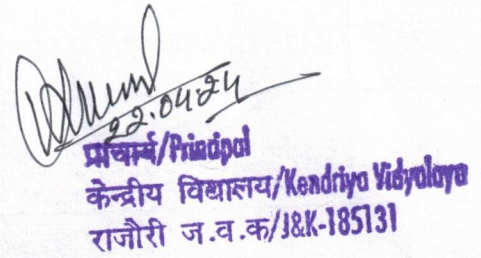 22.04.24
प्राचार्य/Principal
केन्द्रीय विद्यालय/Kendriya Vidyalaya
राजौरी ज.व.क/J&K-185131